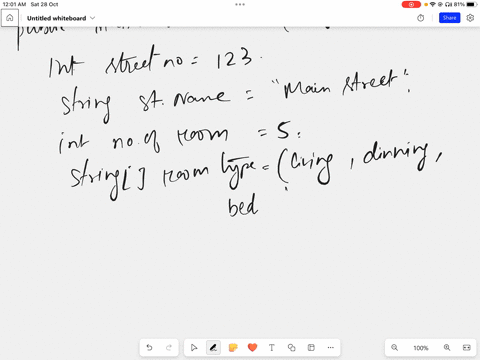 12:01 AM Sat 28 Oct
81%
Untitled whiteboard
Share
int street no = 123.
string st. Name = "Main street".
int no. of room = 5.
string[] room type = (living, dinning,
bed
100%